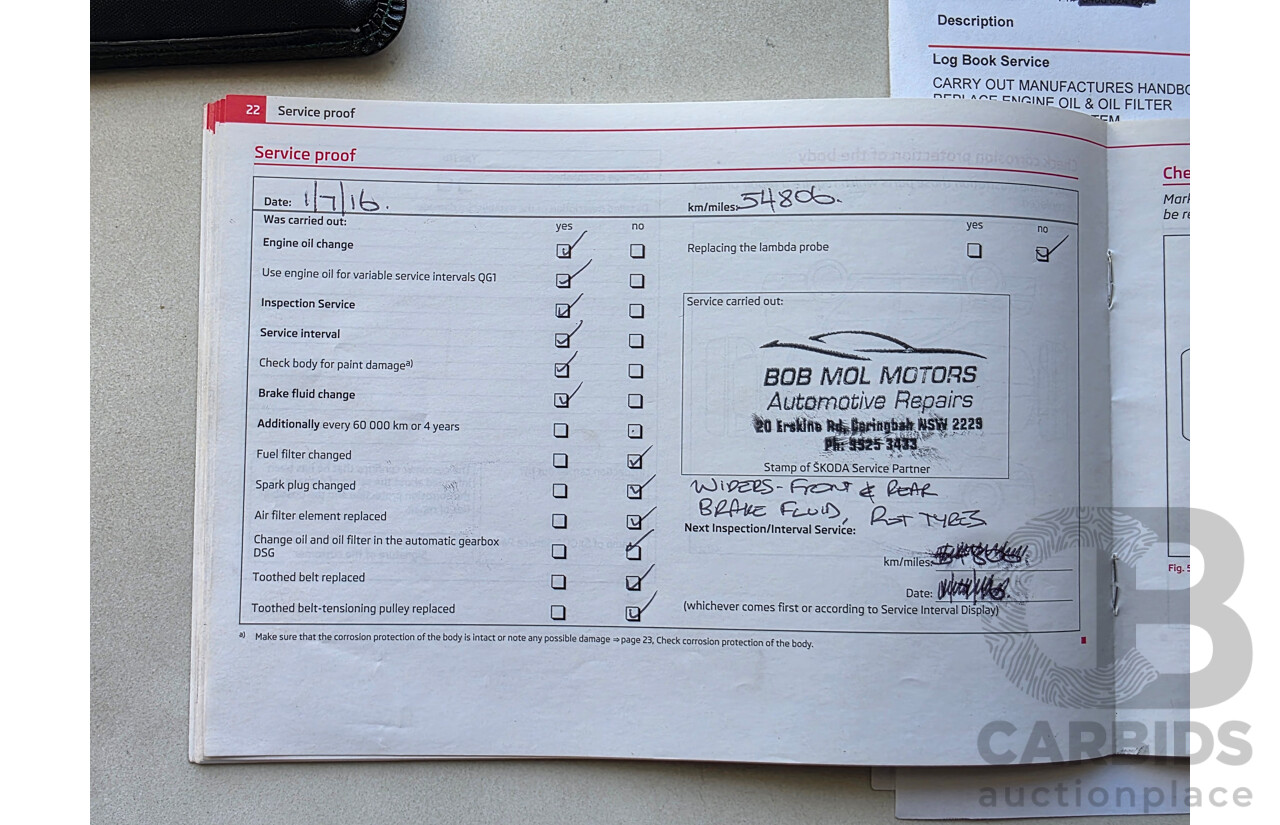 Description
Log Book Service
CARRY OUT MANUFACTURES HANDBO
REPLACE ENGINE OIL & OIL FILTER
22 Service proof
Service proof
Date: 1/7/16. km/miles: 54806.
Was carried out: yes no yes no
Engine oil change
Replacing the lambda probe
Use engine oil for variable service intervals QG1
Inspection Service
Service carried out:
Service interval
Check body for paint damage a)
BOB MOL MOTORS
Automotive Repairs
20 Erskine Rd, Caringbah NSW 2229
Ph: 9525 3433
Stamp of ŠKODA Service Partner
Brake fluid change
Additionally every 60 000 km or 4 years
Fuel filter changed
Spark plug changed
Air filter element replaced
Change oil and oil filter in the automatic gearbox
DSG
Toothed belt replaced
Toothed belt-tensioning pulley replaced
WIPERS - FRONT & REAR
BRAKE FLUID, TYRES
Next Inspection/Interval Service:
km/miles:
Date:
(whichever comes first or according to Service Interval Display)
a) Make sure that the corrosion protection of the body is intact or note any possible damage ⇒ page 23, Check corrosion protection of the body.
Che
Mark
be re
Fig. 5
CARBIDS
auctionplace